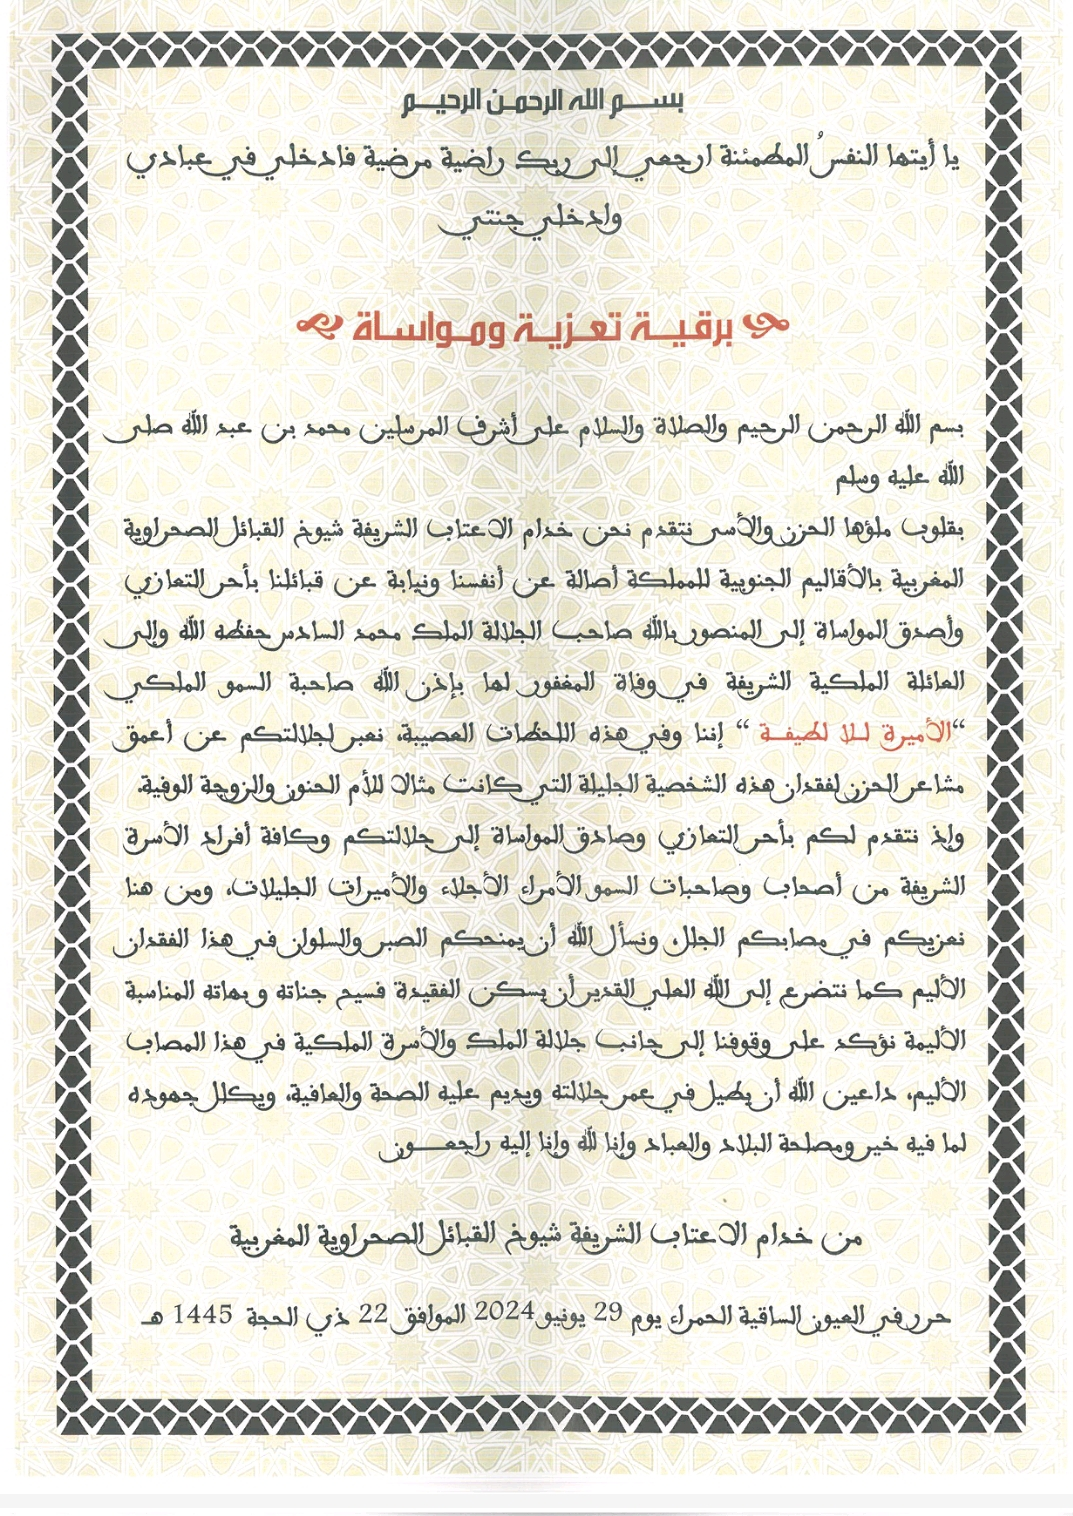 بسم الله الرحمن الرحيم
يا أيتها النفسُ المطمئنة ارجعي إلى ربك راضية مرضية فادخلي في عبادي
وادخلي جنتي
برقية تعزية ومواساة
بسم الله الرحمن الرحيم والصلاة والسلام على أشرف المرسلين محمد بن عبد الله صلى
الله عليه وسلم
بقلوب ملؤها الحزن والأسى نتقدم نحن خدام الاعتاب الشريفة شيوخ القبائل الصحراوية
المغربية بالأقاليم الجنوبية للمملكة أصالة عن أنفسنا ونيابة عن قبائلنا بأحر التعازي
وأصدق المواساة إلى المنصور بالله صاحب الجلالة الملك محمد السادس حفظه الله وإلى
العائلة الملكية الشريفة في وفاة المغفور لها بإذن الله صاحبة السمو الملكي
“الأميرة للا لطيفة “ إننا وفي هذه اللحظات العصيبة، نعبر لجلالتكم عن أعمق
مشاعر الحزن لفقدان هذه الشخصية الجليلة التي كانت مثالا للأم الحنون والزوجة الوفية.
وإذ نتقدم لكم بأحر التعازي وصادق المواساة إلى جلالتكم وكافة أفراد الأسرة
الشريفة من أصحاب وصاحبات السمو الأمراء الأجلاء والأميرات الجليلات، ومن هنا
نعزيكم في مصابكم الجلل، ونسأل الله أن يمنحكم الصبر والسلوان في هذا الفقدان
الأليم كما نتضرع إلى الله العلي القدير أن يسكن الفقيدة فسيح جناته و بهاته المناسبة
الأليمة نؤكد على وقوفنا إلى جانب جلالة الملك والأسرة الملكية في هذا المصاب
الأليم، داعين الله أن يطيل في عمر جلالته ويديم عليه الصحة والعافية، ويكلل جهوده
لما فيه خير ومصلحة البلاد والعباد وإنا لله وإنا إليه راجعون
من خدام الاعتاب الشريفة شيوخ القبائل الصحراوية المغربية
حرر في العيون الساقية الحمراء يوم 29 يونيو 2024 الموافق 22 ذي الحجة 1445 هـ